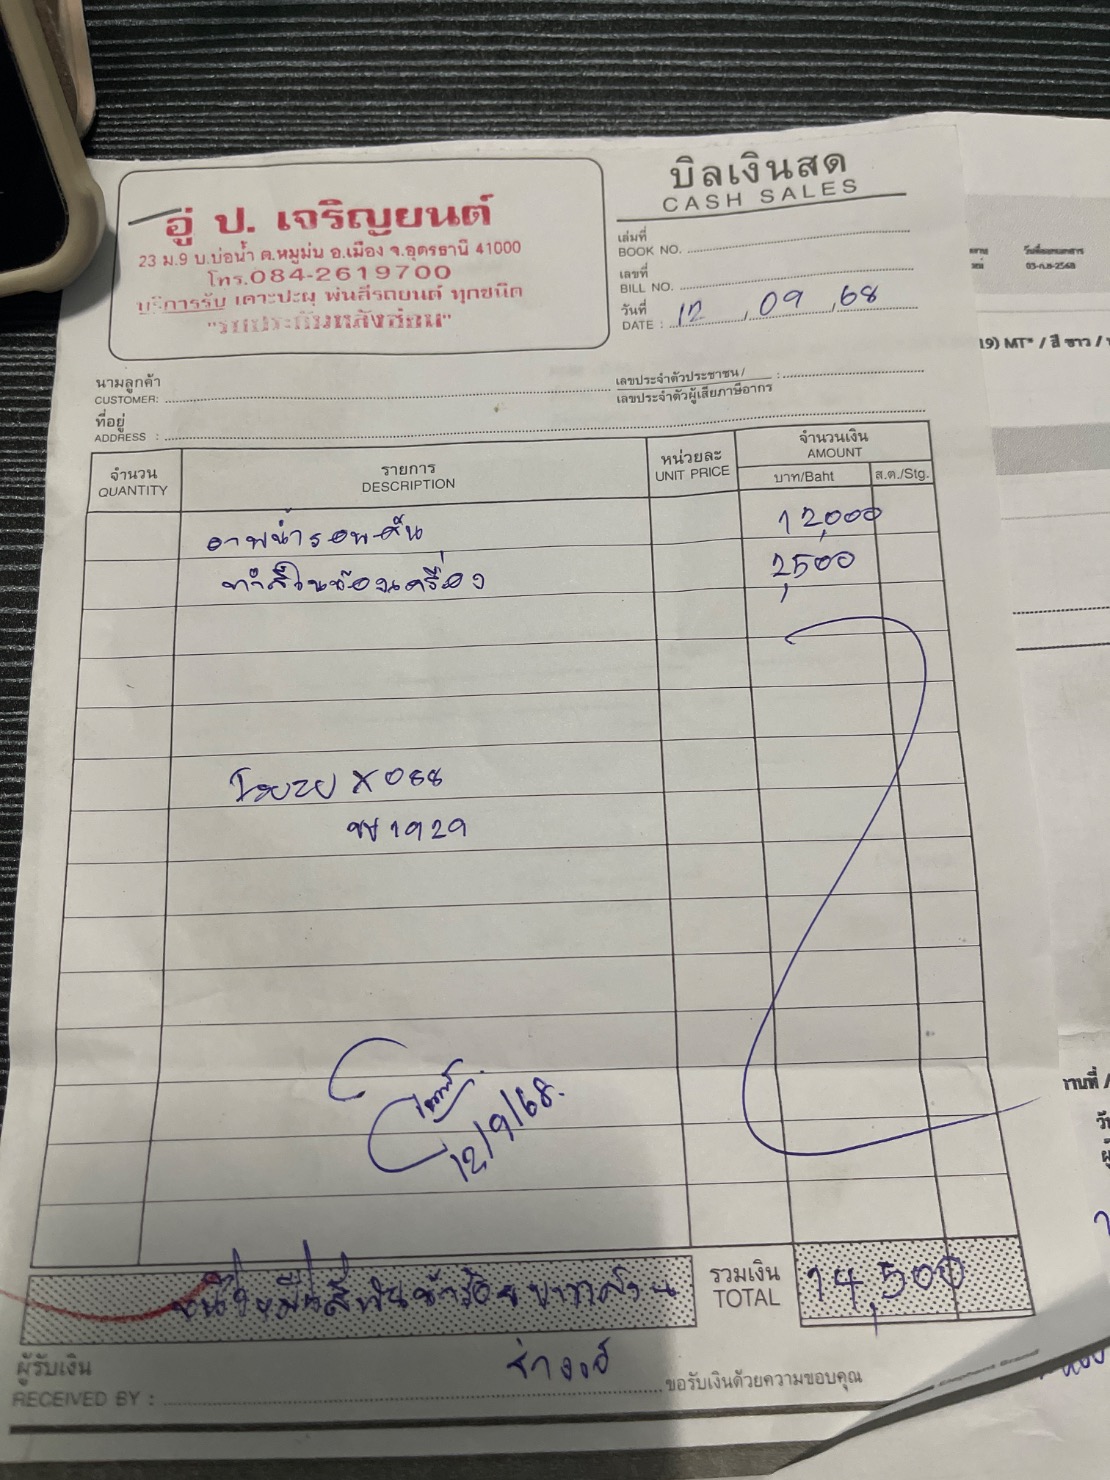 บิลเงินสด
CASH SALES
อู่ ป. เจริญยนต์
23 ม.9 บ.บ่อน้ำ ต.หมูม่น อ.เมือง จ.อุดรธานี 41000
โทร.084-2619700
บริการรับ เคาะปะผุ พ่นสีรถยนต์ ทุกชนิด
"รับประกันหลังซ่อม"
เล่มที่
BOOK NO.
เลขที่
BILL NO.
วันที่
DATE : 12 , 09 , 68
นามลูกค้า
CUSTOMER:
เลขประจำตัวประชาชน/ :
เลขประจำตัวผู้เสียภาษีอากร
ที่อยู่
ADDRESS :
จำนวน รายการ หน่วยละ จำนวนเงิน
QUANTITY DESCRIPTION UNIT PRICE AMOUNT
บาท/Baht ส.ต./Stg.
12,000
ทำสีในห้องเครื่อง 2,500
1929
12/9/68.
หนึ่งหมื่นสี่พันห้าร้อยบาทถ้วน
รวมเงิน
TOTAL 14,500
ผู้รับเงิน
RECEIVED BY : ขอรับเงินด้วยความขอบคุณ
Elephant Brand
วันที่ออกเอกสาร
03-ก.ย-2568
19) MT* / สี ขาว /